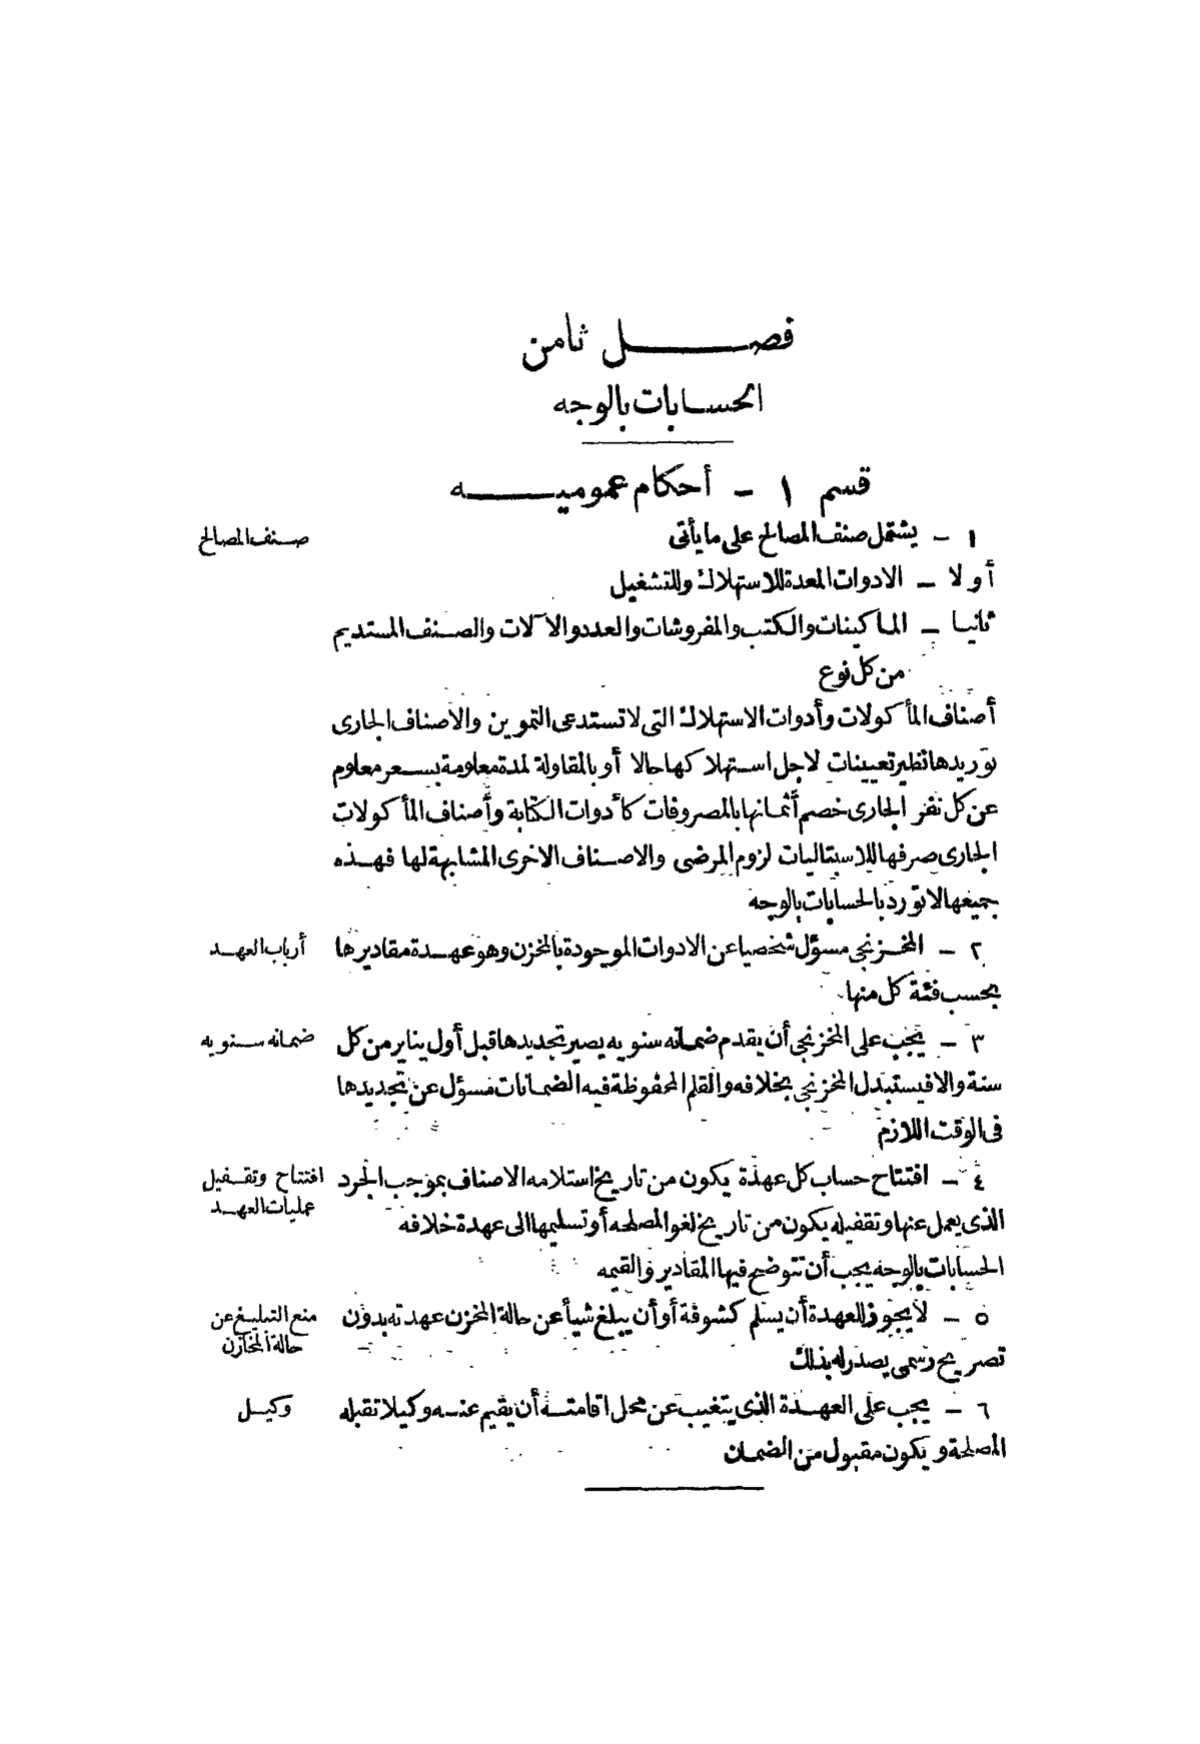 فصل ثامن
الحسابات بالوجه
قسم ١ - أحكام عموميه
صنف المصالح
١ - يشتمل صنف المصالح على ما يأتى
أولا - الادوات المعدة للاستهلاك وللتشغيل
ثانيا - الماكينات والكتب والمفروشات والعدد والآلات والصنف المستديم
من كل نوع
أصناف المأكولات وأدوات الاستهلاك التى لا تستدعى التموين والاصناف الجارى
توريدها نظير تعيينات لاجل استهلاكها حالا أو بالمقاولة لمدة معلومة بسعر معلوم
عن كل نفر الجارى خصم أثمانها بالمصروفات كأدوات الكتابة وأصناف المأكولات
الجارى صرفها للاسبتاليات لزوم المرضى والاصناف الاخرى المشابهة لها فهذه
جميعها لا تورد بالحسابات بالوجه
أرباب العهد
٢ - المخزنجى مسؤل شخصيا عن الادوات الموجودة بالمخزن وهو عهدة مقاديرها
بحسب فئة كل منها
ضمانه سنويه
٣ - يجب على المخزنجى أن يقدم ضمانه سنويه يصير تجديدها قبل أول يناير من كل
سنة والا فيستبدل المخزنجى بخلافه والقلم المحفوظة فيه الضمانات مسؤل عن تجديدها
فى الوقت اللازم
افتتاح وتقفيل
عمليات العهد
٤ - افتتاح حساب كل عهدة يكون من تاريخ استلامه الاصناف بموجب الجرد
الذى يعمل عنها وتقفيله يكون من تاريخ لغو المصلحه أو تسليمها الى عهدة خلافه
الحسابات بالوجه يجب أن تتوضح فيها المقادير والقيمه
منع التبليغ عن
حالة المخازن
٥ - لا يجوز للعهدة أن يسلم كشوفة أو أن يبلغ شيأ عن حالة المخزن عهدته بدون
تصريح رسمى يصدر له بذلك
وكيل
٦ - يجب على العهدة الذى يتغيب عن محل اقامته أن يقيم عنه وكيلا تقبله
المصلحة ويكون مقبول من الضمان